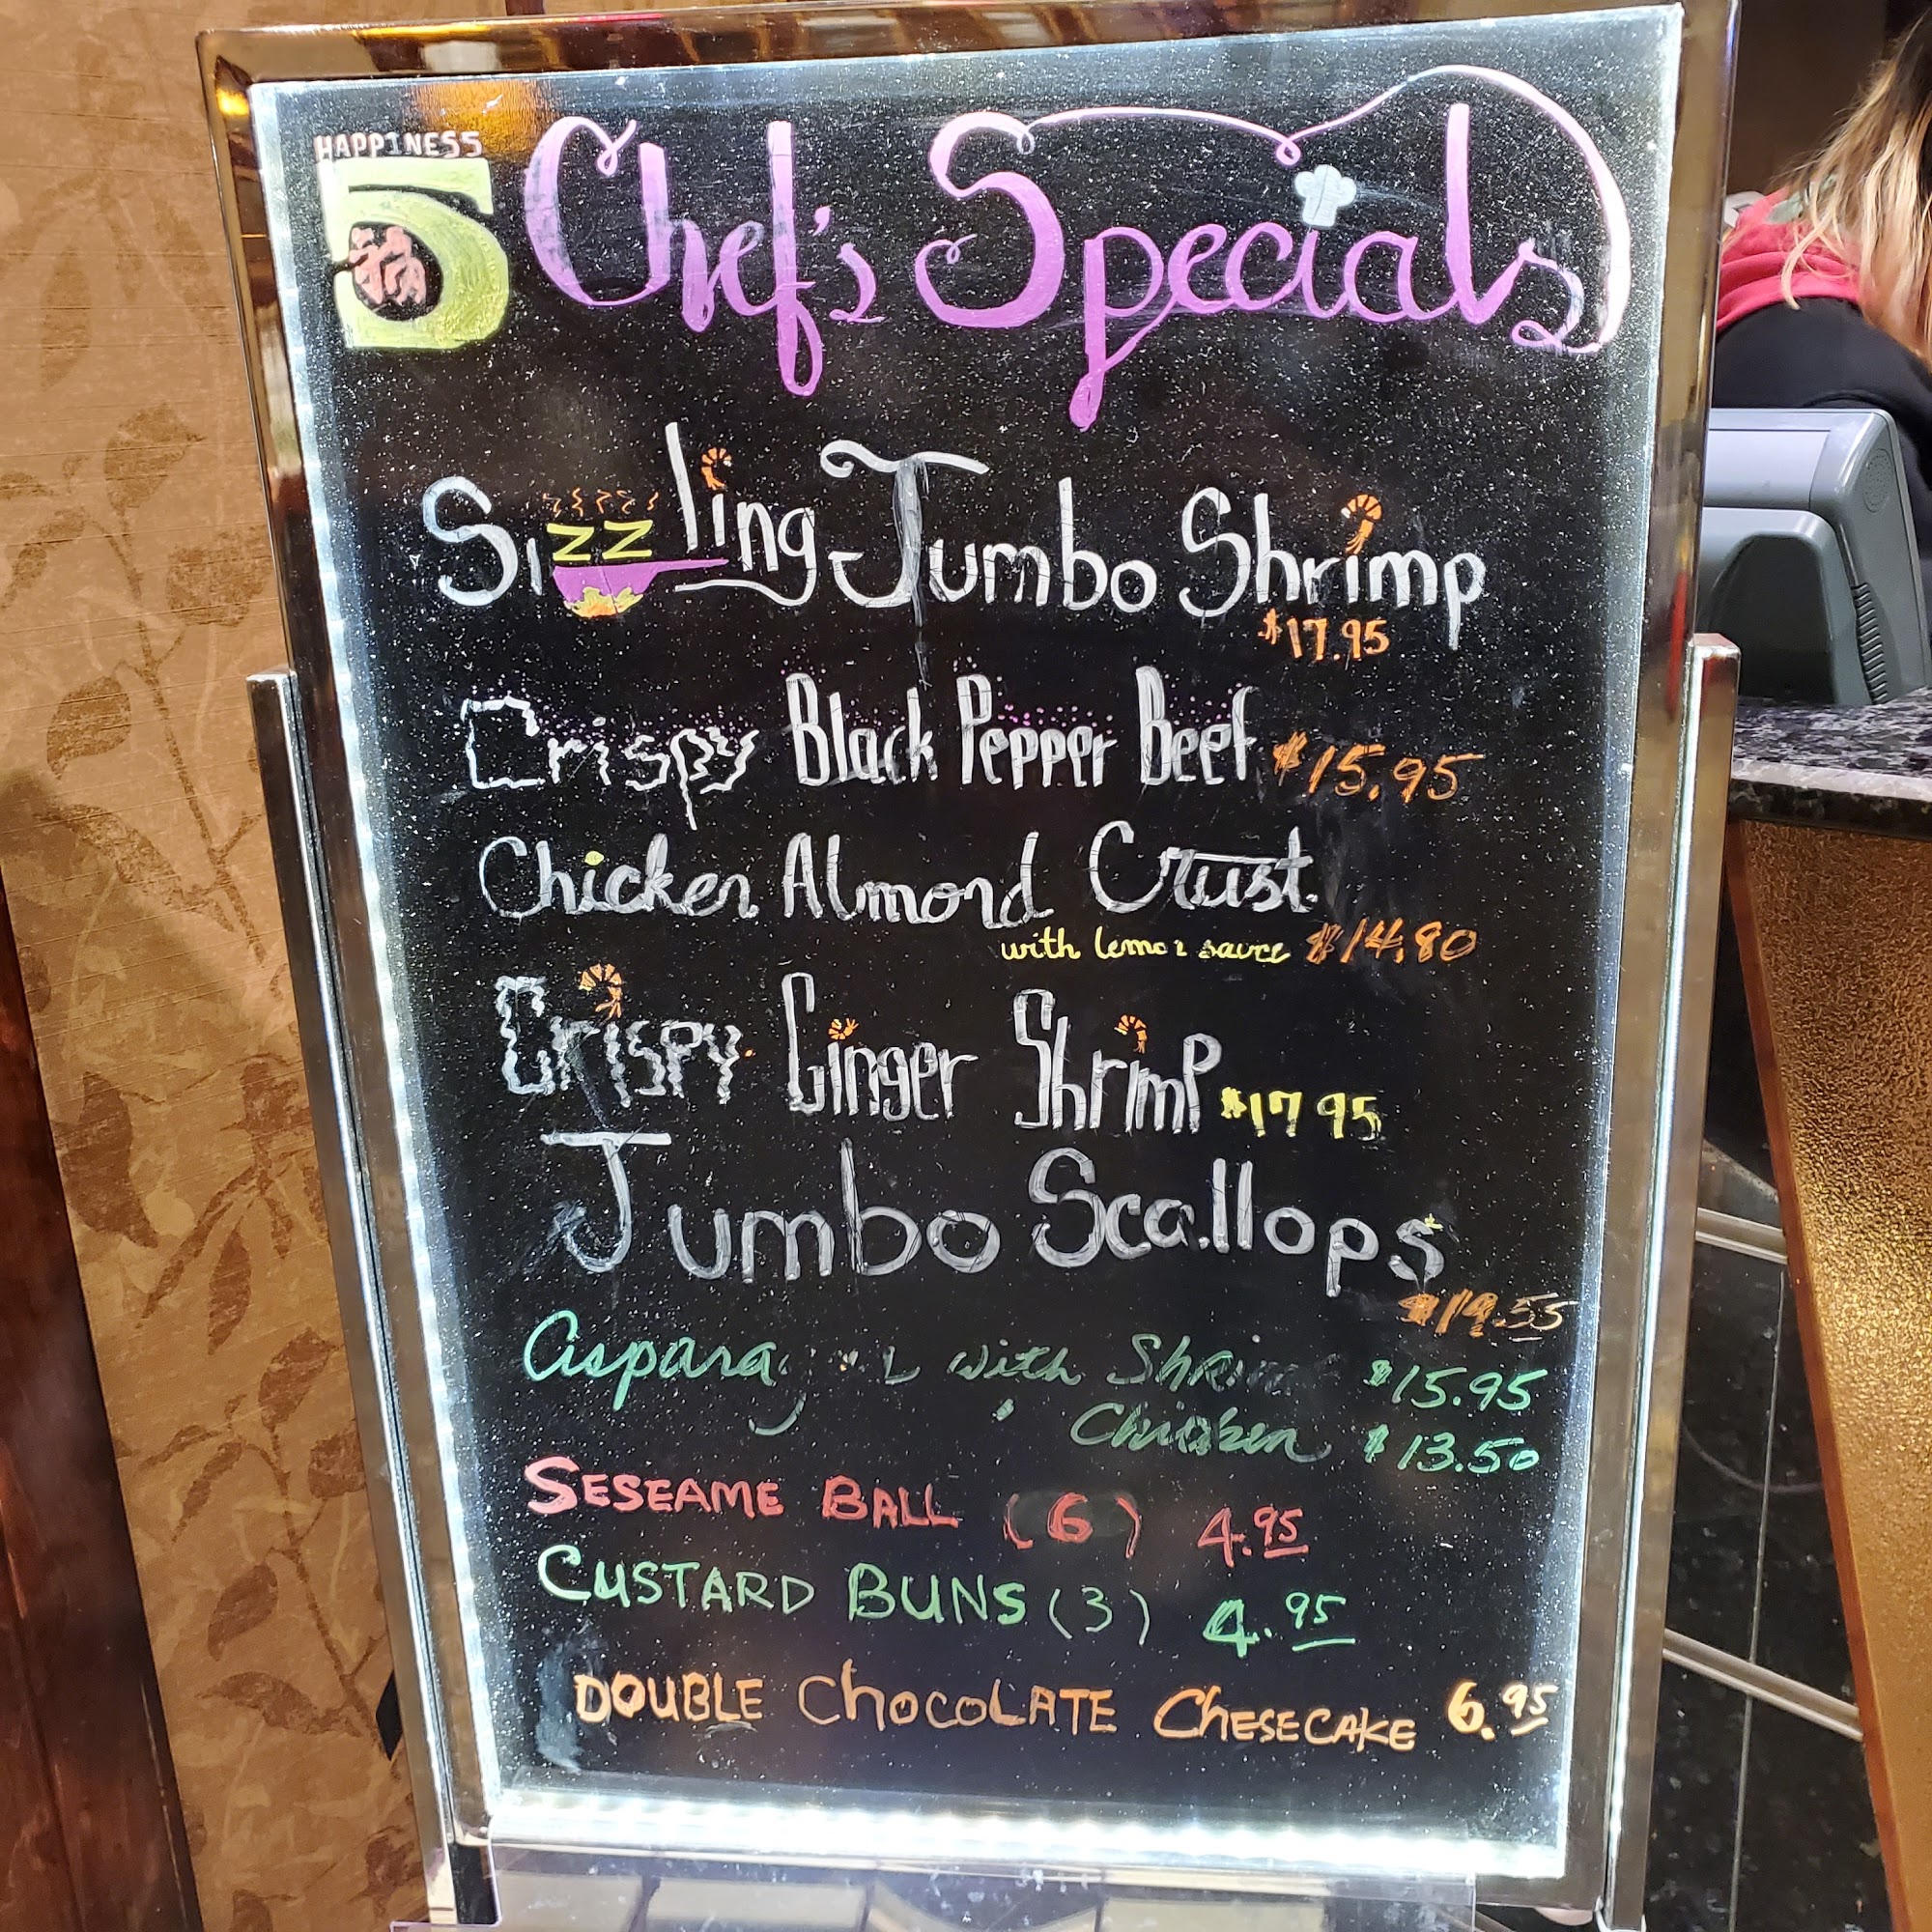 HAPPINESS
5 Chef's Specials
福
Sizzling Jumbo Shrimp
$17.95
Crispy Black Pepper Beef $15.95
Chicken Almond Crust
with lemon sauce $14.80
Crispy Ginger Shrimp $17 95
Jumbo Scallops
$19.55
with Shrim $15.95
Chicken $13.50
SESEAME BALL (6) 4.95
CUSTARD BUNS (3) 4.95
DOUBLE CHOCOLATE CHESECAKE 6.95